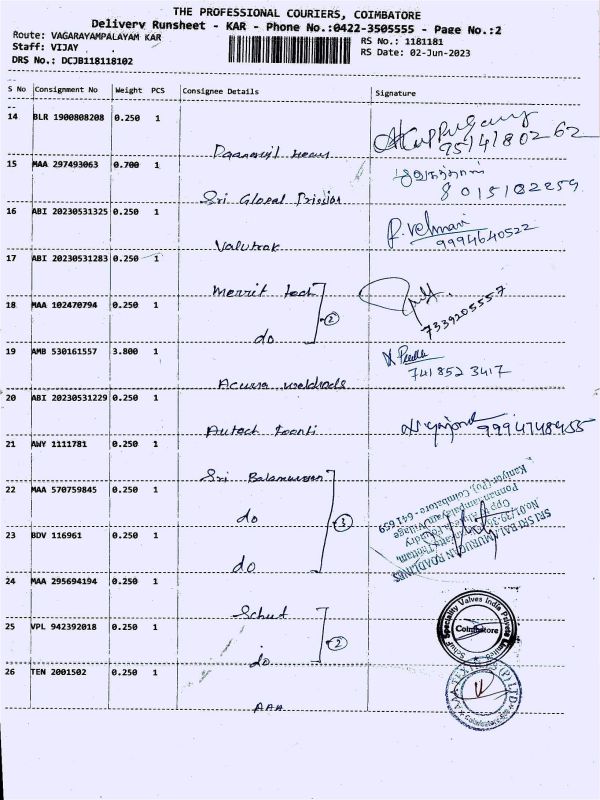 THE PROFESSIONAL COURIERS, COIMBATORE
Delivery Runsheet - KAR - Phone No.:0422-3505555 - Page No.:2
Route: VAGARAYAMPALAYAM KAR
RS No.: 1181181
Staff: VIJAY
RS Date: 02-Jun-2023
DRS No.: DCJB118118102
S No Consignment No Weight PCS Consignee Details Signature
14 BLR 1900808208 0.250 1
9514180262
15 MAA 297493063 0.700 1
8015182259
Sri Global
16 ABI 20230531325 0.250 1 P. Velmani
9994640522
Valutrak
17 ABI 20230531283 0.250 1
Merrit tech
18 MAA 102470794 0.250 1 2
7339205557
do
19 AMB 530161557 3.800 1
741852 3417
Acura
20 ABI 20230531229 0.250 1
Autech
9994748455
21 AWY 1111781 0.250 1
Sri Balamurugan
22 MAA 570759845 0.250 1
do 3
23 BDV 116961 0.250 1
do
SRI SRI BALAMURUGAN ROADLINES
Kaniyur (Po), Coimbatore - 641 659
24 MAA 295694194 0.250 1
Schuf
Schuf Speciality Valves India Private Limited
Coimbatore
25 VPL 942392018 0.250 1 2
do
26 TEN 2001502 0.250 1
AAA
AAA TEXTILES (P) LTD